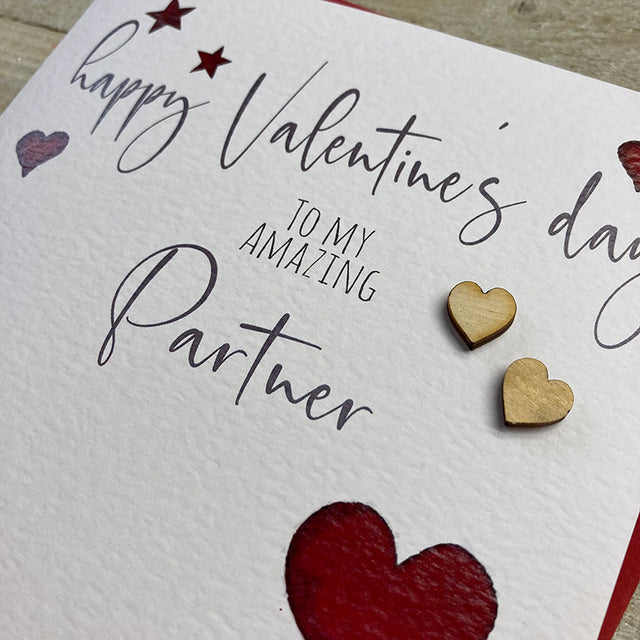 happy Valentine's day
TO MY
AMAZING
Partner